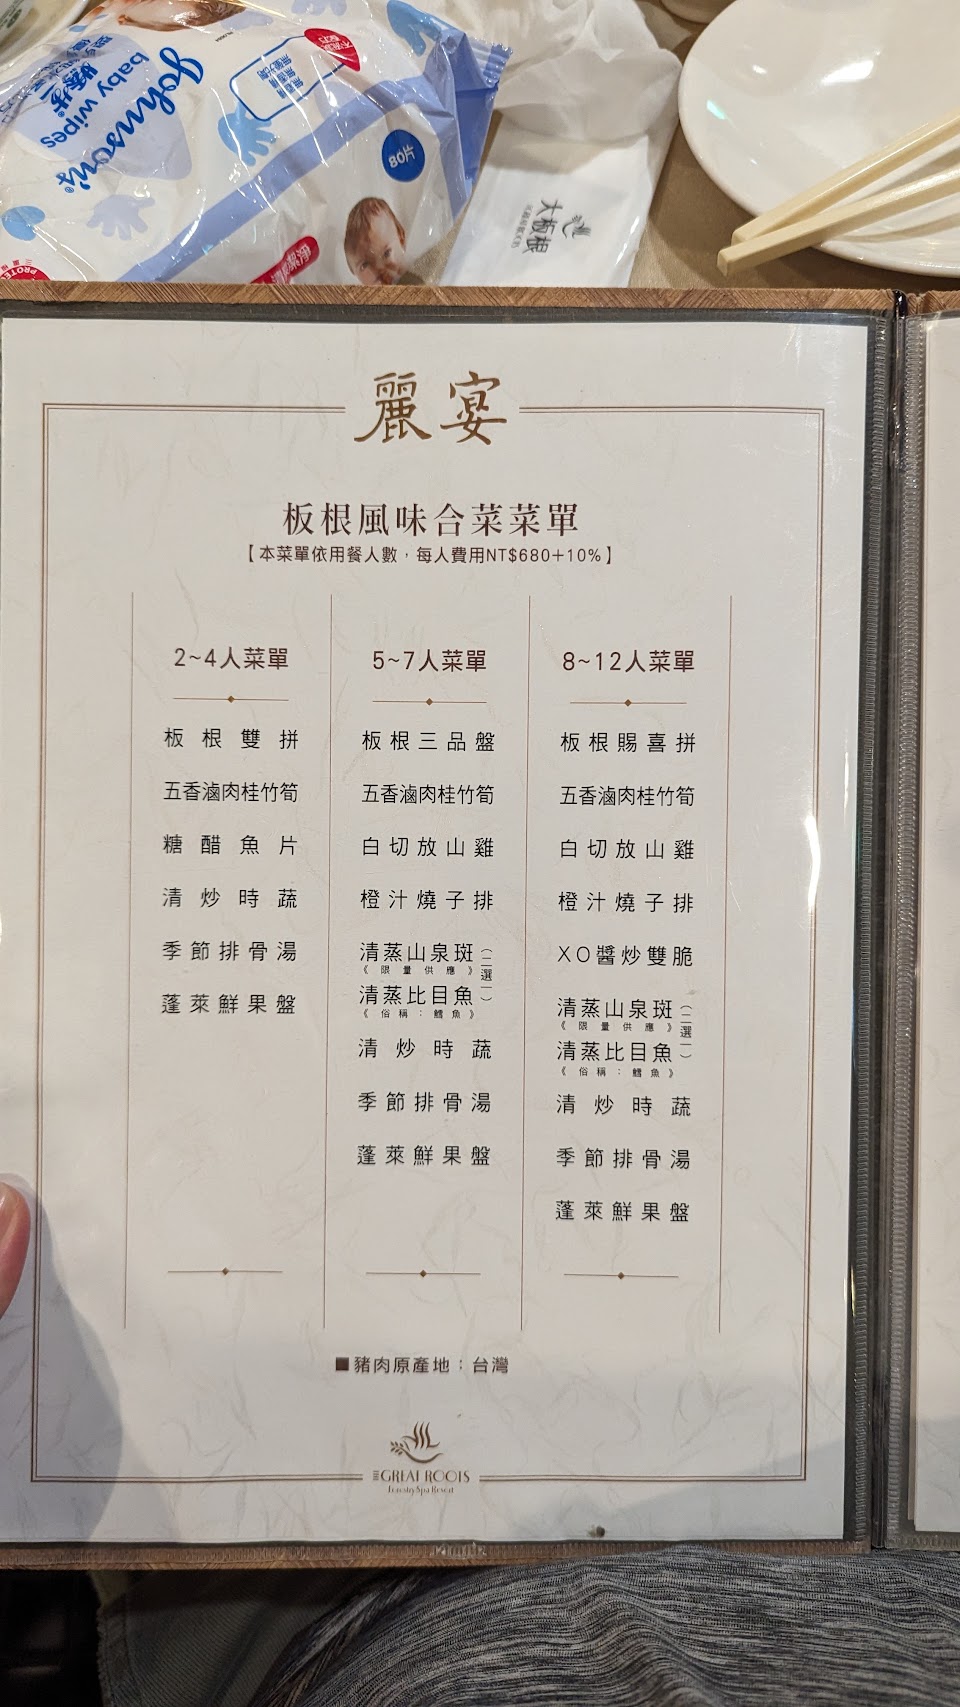 Johnson's®
baby wipes
嬰兒
80片
大板根
麗宴
板根風味合菜菜單
【本菜單依用餐人數,每人費用NT$680+10%】
2~4人菜單
板根雙拼
五香滷肉桂竹筍
糖醋魚片
清炒時蔬
季節排骨湯
蓬萊鮮果盤
5~7人菜單
板根三品盤
五香滷肉桂竹筍
白切放山雞
橙汁燒子排
清蒸山泉斑
《限量供應》
清蒸比目魚
《俗稱:鱈魚》
(二選一)
清炒時蔬
季節排骨湯
蓬萊鮮果盤
8~12人菜單
板根賜喜拼
五香滷肉桂竹筍
白切放山雞
橙汁燒子排
XO醬炒雙脆
清蒸山泉斑
《限量供應》
清蒸比目魚
《俗稱:鱈魚》
(二選一)
清炒時蔬
季節排骨湯
蓬萊鮮果盤
■豬肉原產地:台灣
THE GREAT ROOTS
Forestry Spa Resort